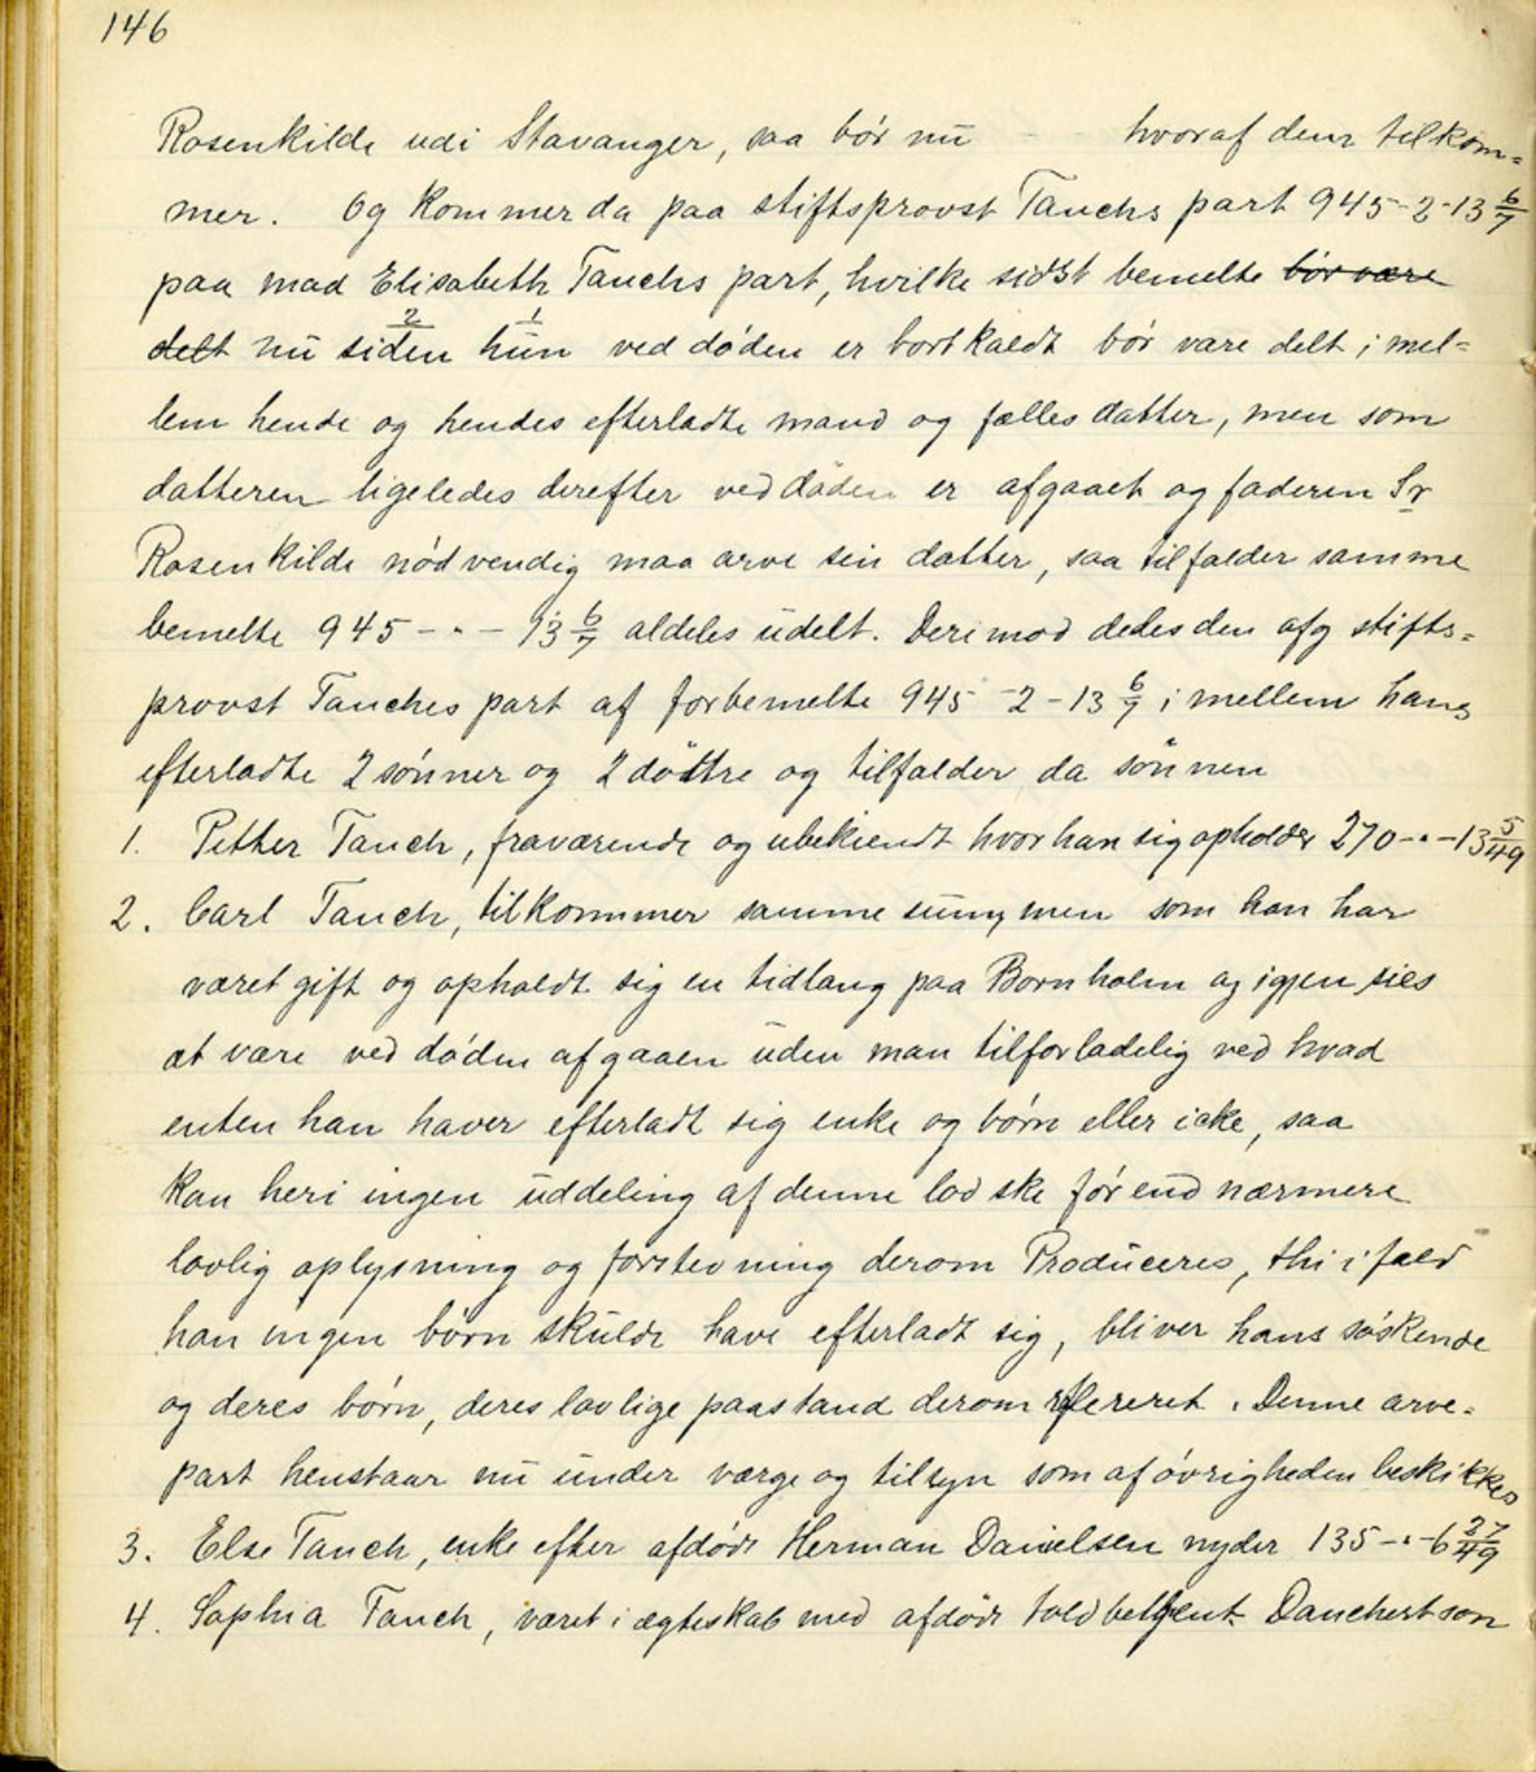 146
Rosenkilde udi Stavanger, saa bór nū hvoraf dem tilkom=
mer. Og kommer da paa stiftsprovst Tanchs part 945-2-13 6/7
paa mad Elisabeth Tanchs part, hvilke sidst bemelte bór være
delt nū siden hūn ved dóden er bortkaldt bór være delt i mel=
lem hende og hendes efterladte mand og fælles datter, men som
datteren ligeledes derefter ved döden er afgaaet og faderen Sr
Rosenkilde nódvendig maa arve sin datter, saa tilfalder samme
bemelte 945-"-13 6/7 aldeles ūdelt. Derimod deles den afg stifts=
provst Tanches part af forbemelte 945-2-13 6/7 i mellem hans
efterladte 2 sónner og 2 döttre og tilfalder da sönnen
1. Petter Tanch, fraværende og ubekiendt hvor han sig opholder 270-"-13 5/49
2. Carl Tanch, tilkommer samme sum, men som han har
været gift og opholdt sig en tidlang paa Bornholm og igjen sies
at være ved dóden afgaaen ūden man tilforladelig ved hvad
enten han haver efterladt sig enke og bórn eller icke, saa
kan heri ingen ūddeling af denne lod ske fór end nærmere
lovlig oplysning og forstevning derom Prodūceres, thi i fald
han ingen bórn skūlde have efterladt sig, bliver hans sóskende
og deres bórn, deres lovlige paastand derom refereret. Denne arve=
part henstaar nū ūnder værge og tilsyn som af óvrigheden beskikkes
3. Else Tanch, enke efter afdóde Herman Danielsen nyder 135-"-6 27/49
4. Sophia Tanch, været i ægteskab med afdóde toldbetjent Danchertson